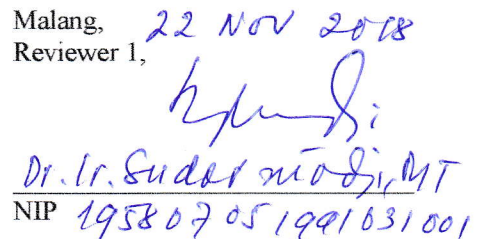 Malang, 22 NOV 2018
Reviewer 1,
Dr. Ir. Sudarmadji, MT
NIP 195807051991031001